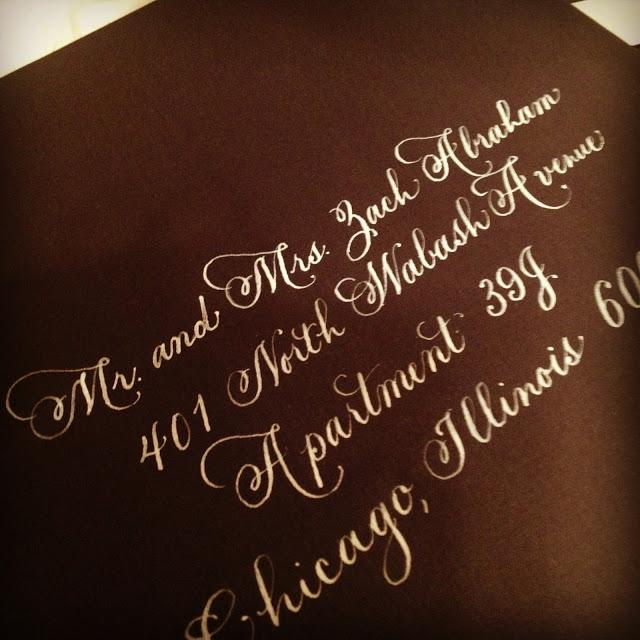 Mr. and Mrs. Zach Abraham
401 North Wabash Avenue
Apartment 39J
Chicago, Illinois 60